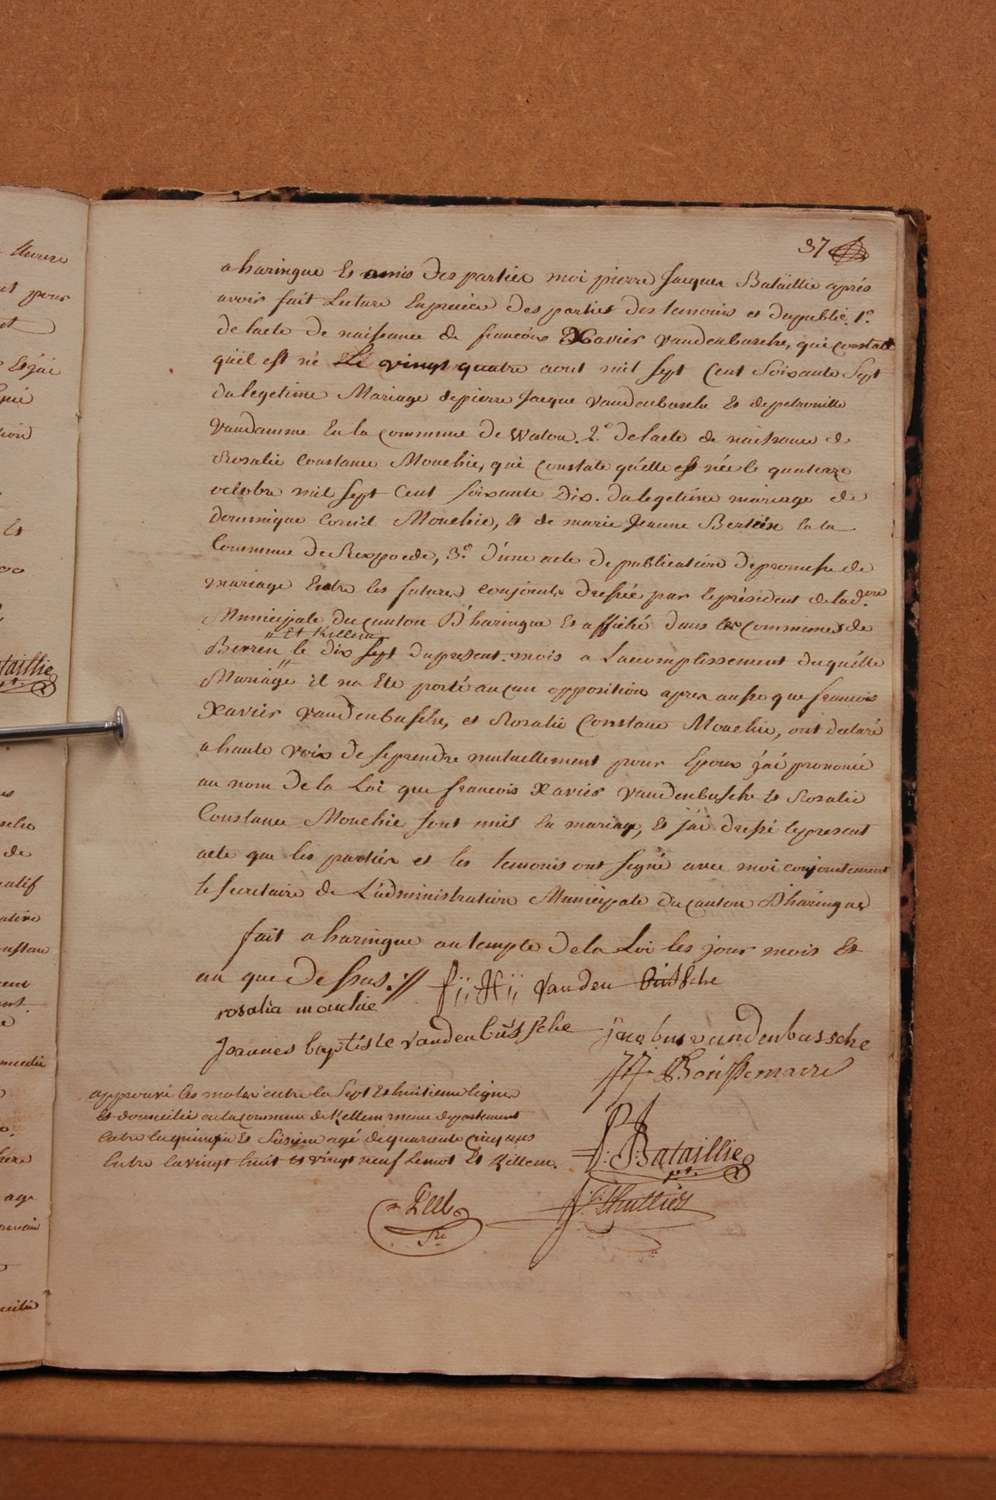 37
a haringue Et amis des parties moi pierre Jacques Bataillie après
avoir fait Lecture En presence des parties des temoins et du public. 1.º
de lacte de naissance de francois Xavier Vandenbusche, qui constatt
quil est né Le vingt quatre aout mil sept Cent soixante sept
du legetime Mariage de pierre Jacque Vandenbusche Et de petronille
Vandamme En la commune de Watou. 2.º de lacte de naissance de
Rosalie Constance Mouchie, qui constate qu'elle est née le quatorze
octobre mil sept Cent soixante Dix. du legetime mariage de
Dominique Cornil Mouchie, Et de marie Jeanne Bertein En la
Commune de Rexpoede, 3.º d'une acte de publication de promesse de
mariage Entre les futures conjoints dressée par le président de lad.
Municipale du canton D'haringue Et affiché dans les communes de
" Et Killem "
Beveren le dix sept du present mois a Laccomplissement duquelle
Mariage il na Ete porté aucun opposition apres aussi que francois
Xavier Vandenbusche, et Rosalie Constance Mouchie, ont declaré
a haute voix de se prendre mutuellement pour Epoux j'ai prononcé
au nom de la Loi que francois Xavier Vandenbusche Et Rosalie
Constance Mouchie sont unis En mariage, Et j'ai dressé le present
acte que les parties et les temoins ont signé avec moi conjointement
le secretaire de L'administration Municipale du canton D'haringue
fait a haringue au temple de la Loi les jour mois Et
an que Dessus.
Vanden Bussche
rosalia mouchie
Joannes baptiste Vandenbussche
jacobus vandenbussche
approuvé les mots entre la sept Et huitieme ligne
Et domicilié en la commune de Killem meme departement
Entre la quinzie Et Seisieme agé de quarante Cinq ans
Entre la vingt huit et vingt neuf Le mot Et Killem.
P. J. Bataillie